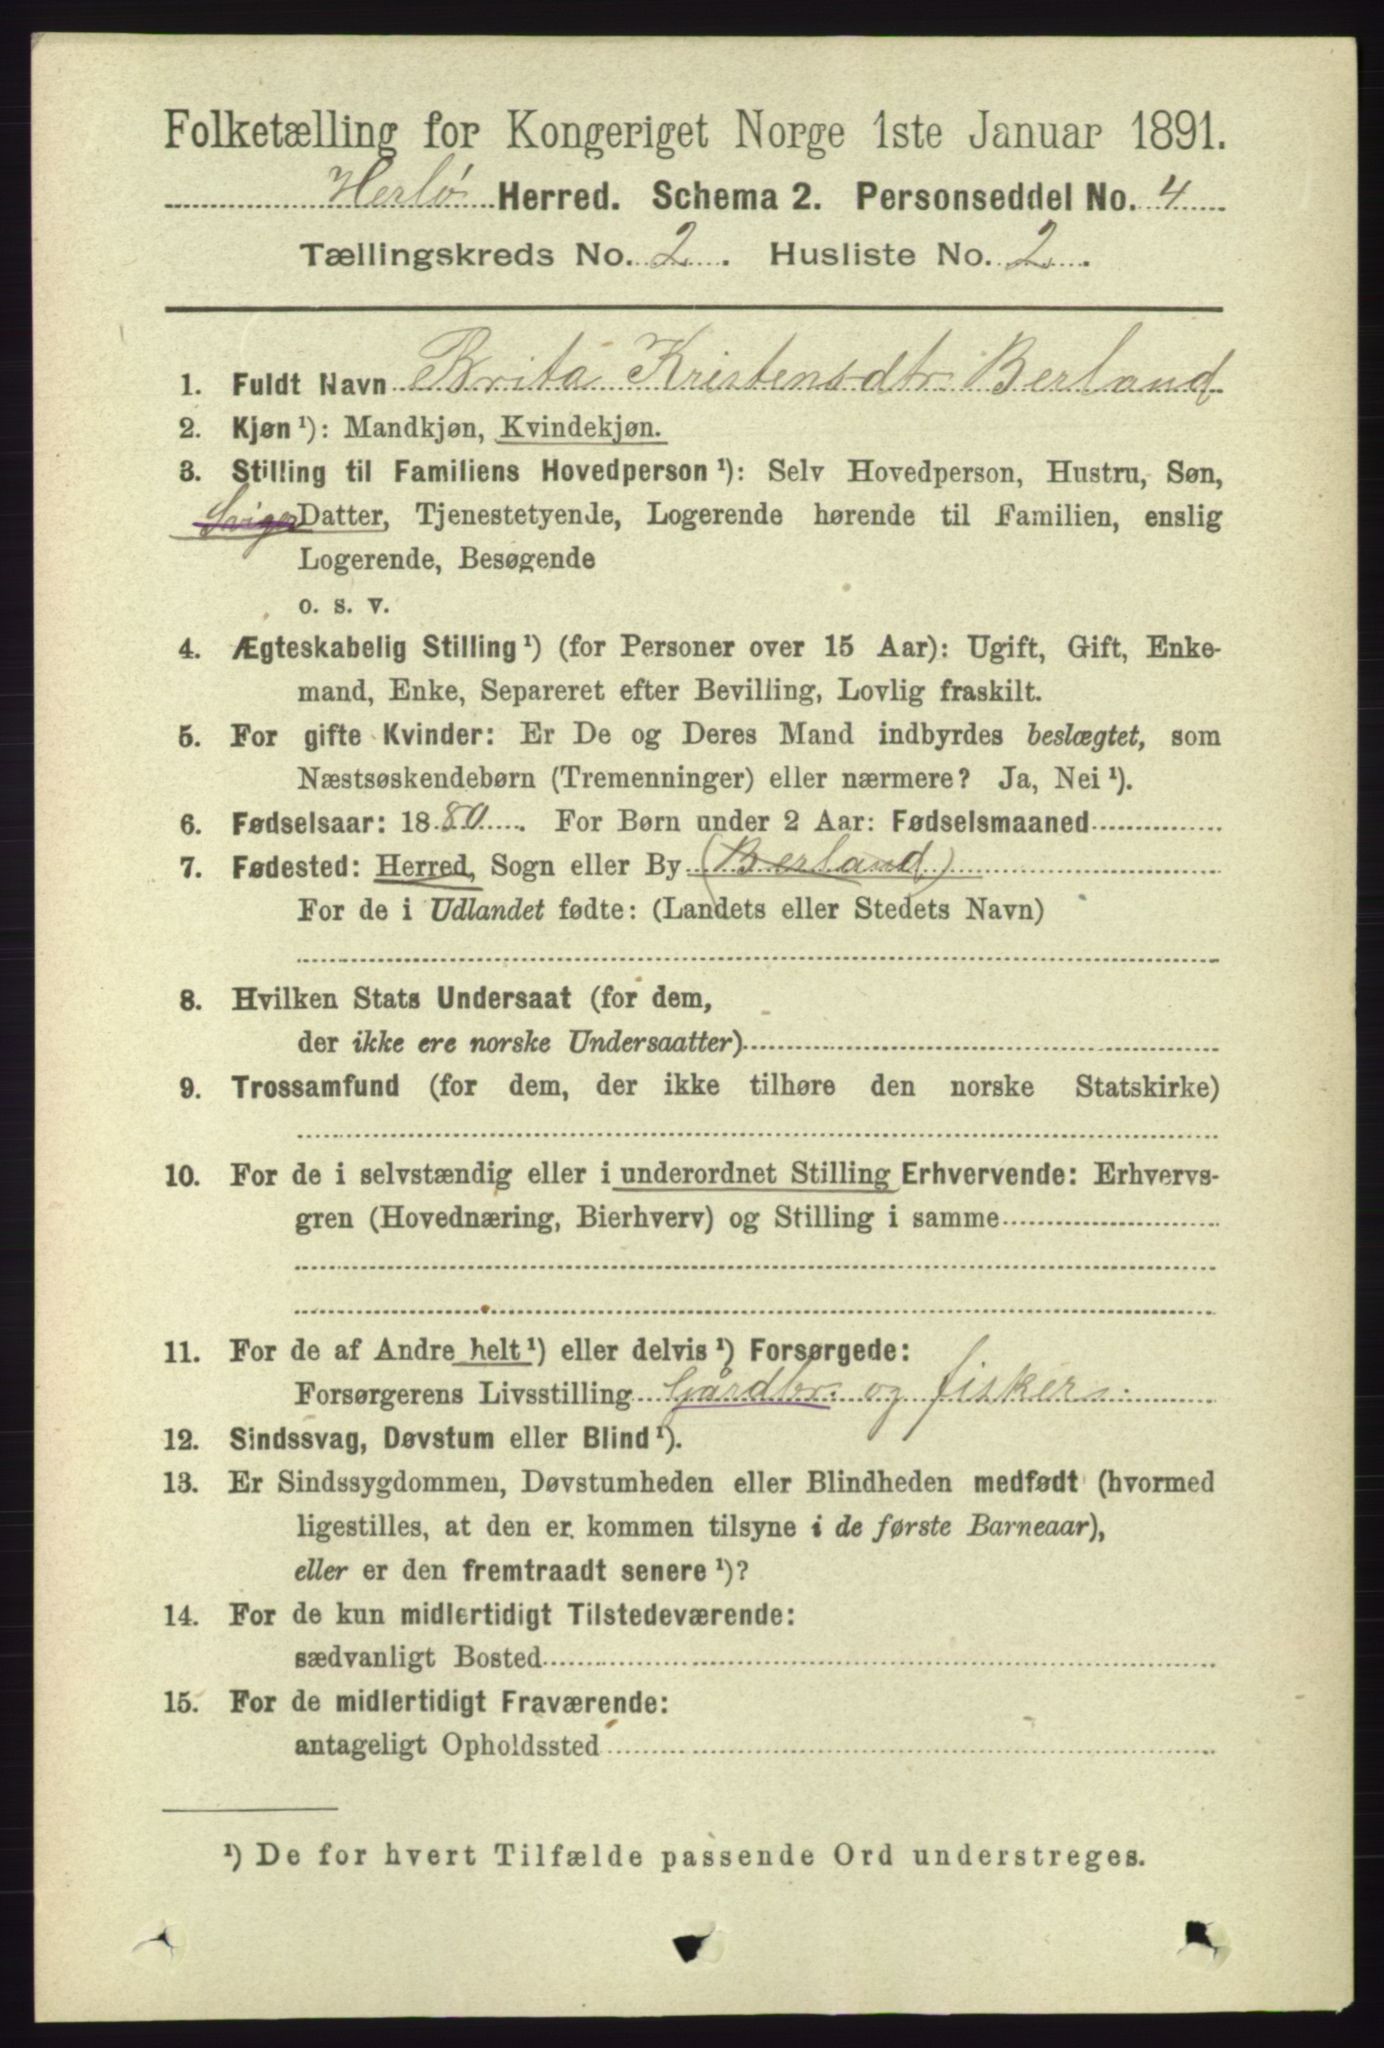 Folketælling for Kongeriget Norge 1ste Januar 1891.
Herlø Herred. Schema 2. Personseddel No. 4
Tællingskreds No. 2. Husliste No. 2.
1. Fuldt Navn Brita Kristensdtr Berland
2. Kjøn ¹): Mandkjøn, Kvindekjøn.
3. Stilling til Familiens Hovedperson ¹): Selv Hovedperson, Hustru, Søn,
Sviger Datter, Tjenestetyende, Logerende hørende til Familien, enslig
Logerende, Besøgende
o. s. v.
4. Ægteskabelig Stilling ¹) (for Personer over 15 Aar): Ugift, Gift, Enke-
mand, Enke, Separeret efter Bevilling, Lovlig fraskilt.
5. For gifte Kvinder: Er De og Deres Mand indbyrdes beslægtet, som
Næstsøskendebørn (Tremenninger) eller nærmere? Ja, Nei ¹).
6. Fødselsaar: 1880. For Børn under 2 Aar: Fødselsmaaned
7. Fødested: Herred, Sogn eller By (Berland)
For de i Udlandet fødte: (Landets eller Stedets Navn)
8. Hvilken Stats Undersaat (for dem,
der ikke ere norske Undersaatter)
9. Trossamfund (for dem, der ikke tilhøre den norske Statskirke)
10. For de i selvstændig eller i underordnet Stilling Erhvervende: Erhvervs-
gren (Hovednæring, Bierhverv) og Stilling i samme
11. For de af Andre helt ¹) eller delvis ¹) Forsørgede:
Forsørgerens Livsstilling Gårdbr. og fisker
12. Sindssvag, Døvstum eller Blind ¹).
13. Er Sindssygdommen, Døvstumheden eller Blindheden medfødt (hvormed
ligestilles, at den er kommen tilsyne i de første Barneaar),
eller er den fremtraadt senere ¹)?
14. For de kun midlertidigt Tilstedeværende:
sædvanligt Bosted
15. For de midlertidigt Fraværende:
antageligt Opholdssted
¹) De for hvert Tilfælde passende Ord understreges.